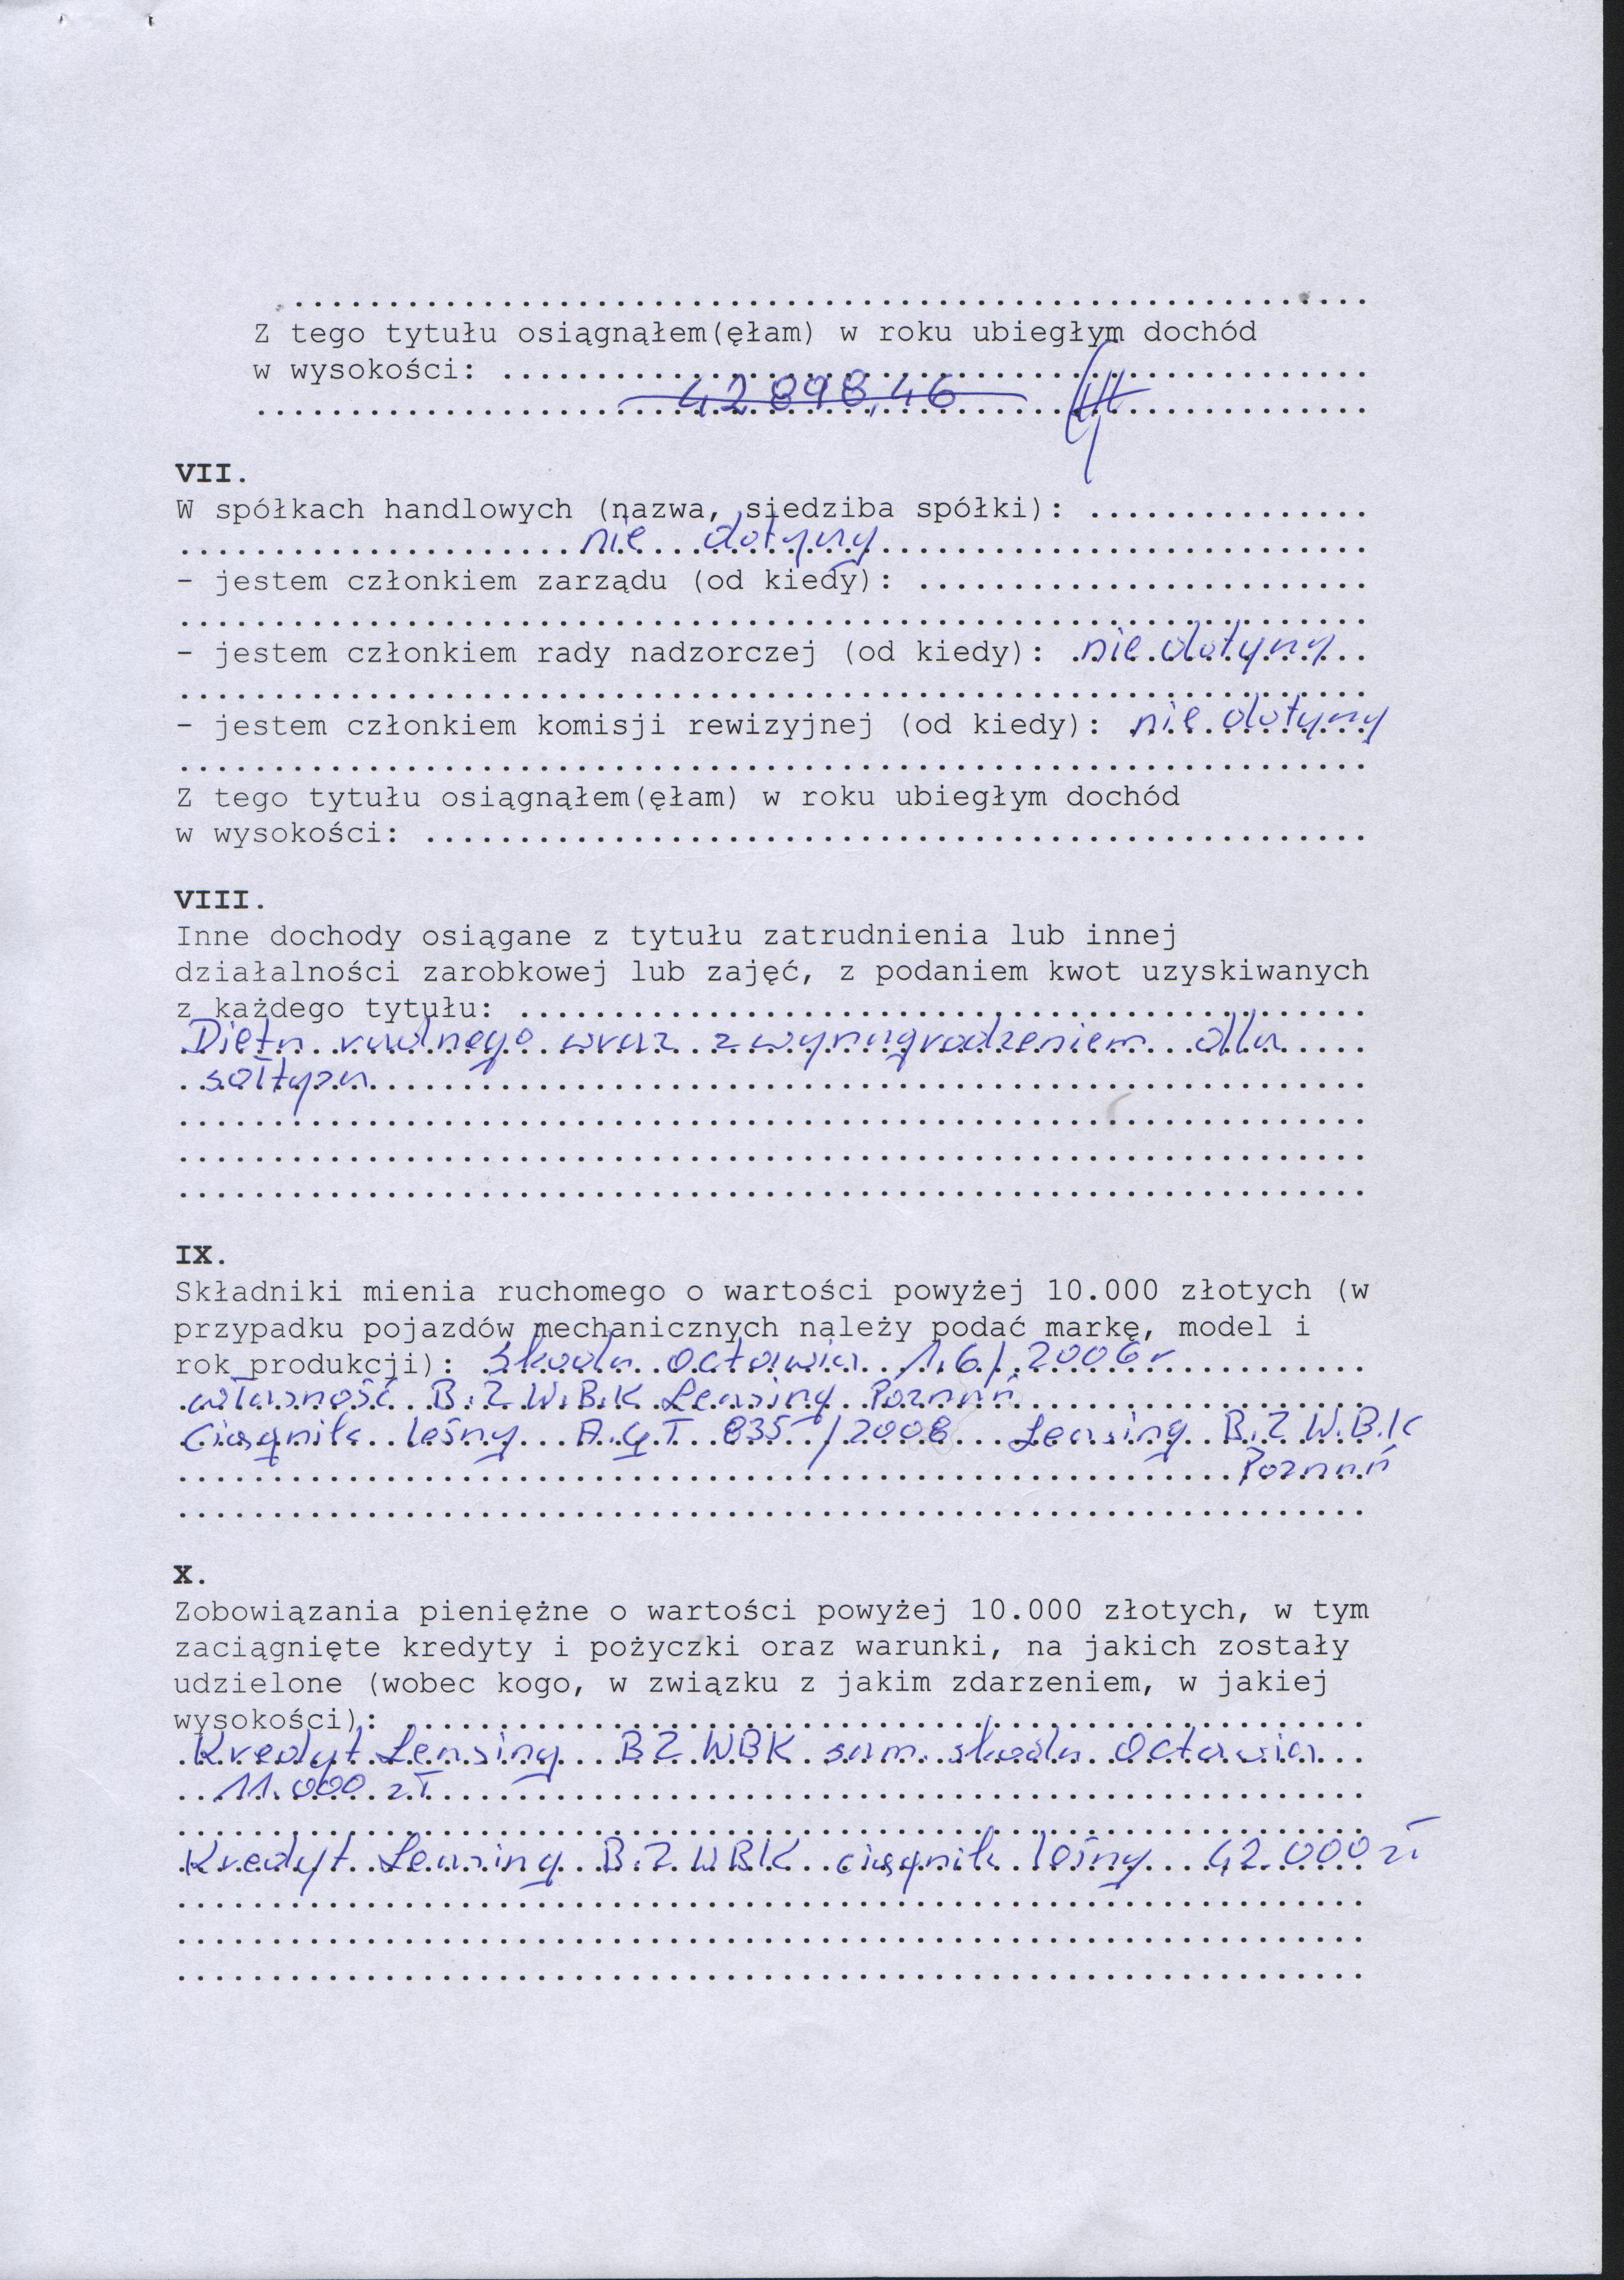 Z tego tytułu osiągnąłem(ęłam) w roku ubiegłym dochód
w wysokości: ..........
42898,46
VII.
W spółkach handlowych (nazwa, siedziba spółki): ..........
nie dotyczy
- jestem członkiem zarządu (od kiedy): ..........
- jestem członkiem rady nadzorczej (od kiedy): nie dotyczy
- jestem członkiem komisji rewizyjnej (od kiedy): nie dotyczy
Z tego tytułu osiągnąłem(ęłam) w roku ubiegłym dochód
w wysokości: ..........
VIII.
Inne dochody osiągane z tytułu zatrudnienia lub innej
działalności zarobkowej lub zajęć, z podaniem kwot uzyskiwanych
z każdego tytułu: ..........
Dieta radnego wraz z wynagrodzeniem dla
sołtysa
IX.
Składniki mienia ruchomego o wartości powyżej 10.000 złotych (w
przypadku pojazdów mechanicznych należy podać markę, model i
rok produkcji): Skoda Octawia 1,6/2006r
własność B.Z W.B.K Leasing Poznań
Ciągnik leśny A.G.T 835/2008 Leasing B.Z W.B.K
Poznań
X.
Zobowiązania pieniężne o wartości powyżej 10.000 złotych, w tym
zaciągnięte kredyty i pożyczki oraz warunki, na jakich zostały
udzielone (wobec kogo, w związku z jakim zdarzeniem, w jakiej
wysokości): ..........
Kredyt Leasing BZ WBK sam. skoda Octawia
11.000 zł
Kredyt Leasing B.Z. WBK ciągnik leśny 42.000 zł